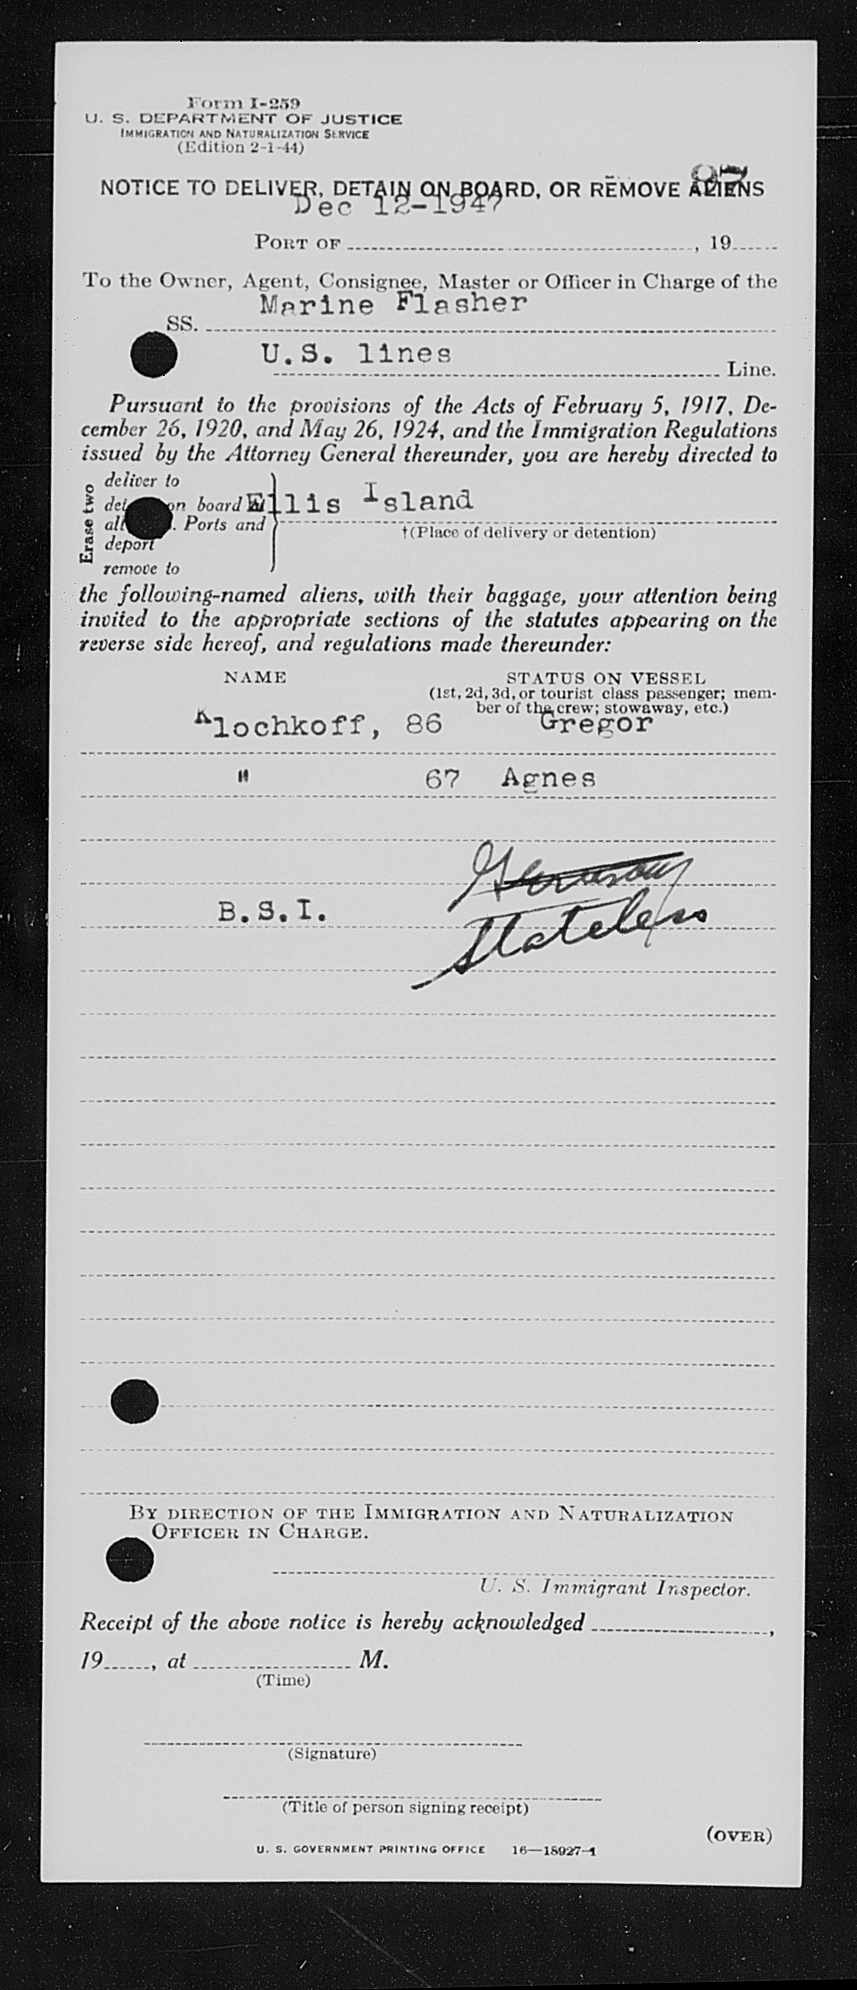 Form I-259
U. S. DEPARTMENT OF JUSTICE
IMMIGRATION AND NATURALIZATION SERVICE
(Edition 2-1-44)
87
NOTICE TO DELIVER, DETAIN ON BOARD, OR REMOVE ALIENS
Dec 12-1947
PORT OF , 19
To the Owner, Agent, Consignee, Master or Officer in Charge of the
Marine Flasher
SS.
U.S. lines
Line.
Pursuant to the provisions of the Acts of February 5, 1917, De-
cember 26, 1920, and May 26, 1924, and the Immigration Regulations
issued by the Attorney General thereunder, you are hereby directed to
Erase two
deliver to
on board at
Ellis Island
Ports and
†(Place of delivery or detention)
deport
remove to
the following-named aliens, with their baggage, your attention being
invited to the appropriate sections of the statutes appearing on the
reverse side hereof, and regulations made thereunder:
NAME STATUS ON VESSEL
(1st, 2d, 3d, or tourist class passenger; mem-
ber of the crew; stowaway, etc.)
Klochkoff, 86 Gregor
" 67 Agnes
Germany
B.S.I. Stateless
BY DIRECTION OF THE IMMIGRATION AND NATURALIZATION
OFFICER IN CHARGE.
U. S. Immigrant Inspector.
Receipt of the above notice is hereby acknowledged ,
19 , at M.
(Time)
(Signature)
(Title of person signing receipt)
(OVER)
U. S. GOVERNMENT PRINTING OFFICE 16—18927-1